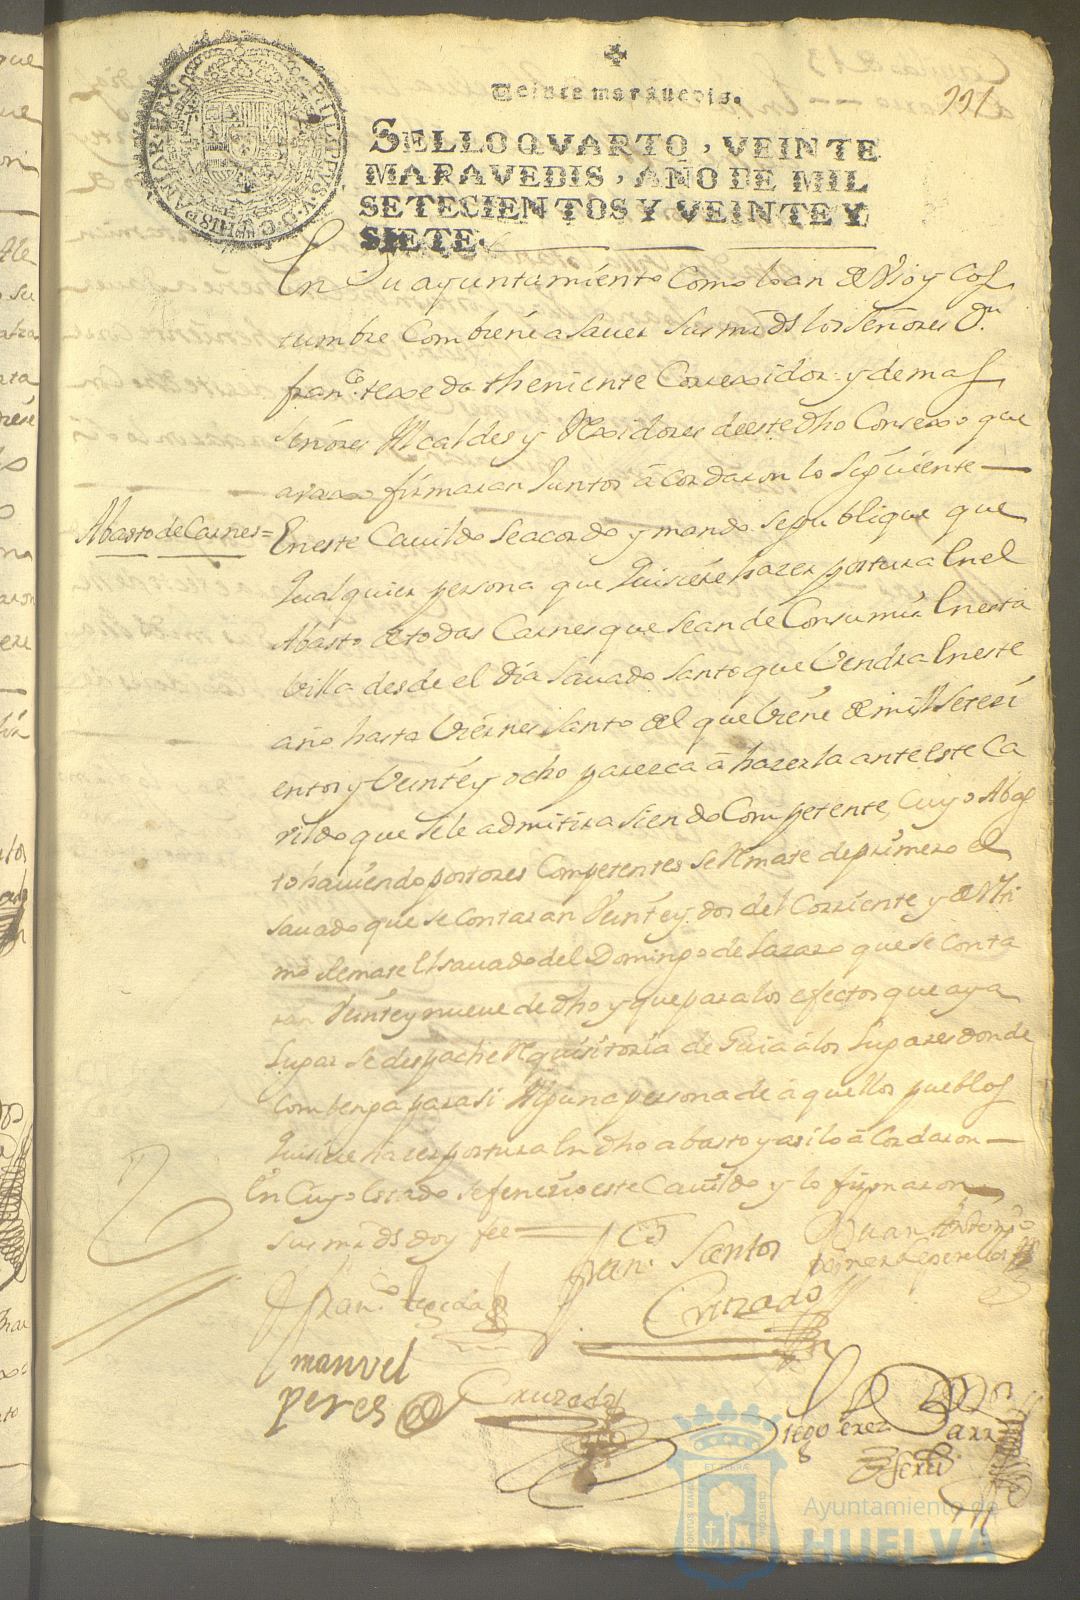 Veinte marauedis.
SELLO QVARTO, VEINTE
MARAVEDIS, AÑO DE MIL
SETECIENTOS Y VEINTE Y
SIETE.
En Su ayuntamiento Como lo an de Vso y Cos
tumbre Combiene a Sauer Sus mds los Señores Dn
franco texeda theniente Correxidor y demas
Señores Alcaldes y Rexidores de este dho Consexo que
firmaran Juntos acordaron lo Siguiente
Abasto de Carnes =
En este Cauildo Se acordo y mando Se publique que
qualquier persona que quisiere hazer postura En el
Abasto de todas Carnes que Sean de Consumir En esta
Villa desde el dia Sauado Santo que Vendra En este
año hasta Viernes Santo del que Viene de mill Seteci
entos y Veinte y ocho parezca a hazerla ante Este Ca
vildo que Se le admitira Siendo Competente, Cuyo Abas
to hauiendo postores Competentes Se Remate de primero el
Sauado que Se Contaran Veinte y dos del Corriente y de Vlti
mo Remate El Sauado del Domingo de Lazaro que Se Conta
ran Veinte y nueve de dho y que para los efectos que aya
lugar Se despache Requisitoria de Guia a los lugares donde
Combenga para Si Alguna persona de aquellos pueblos
quisiere hazer postura En dho abasto y asi lo acordaron
En Cuyo Estado Se fenecio este Cauildo y lo firmaron
Sus mds doy fee
franco Santos Juan Antonio
franco texeda Cruzado
manuel
peres Cruzado
Diego Perez
Ayuntamiento de
HUELVA